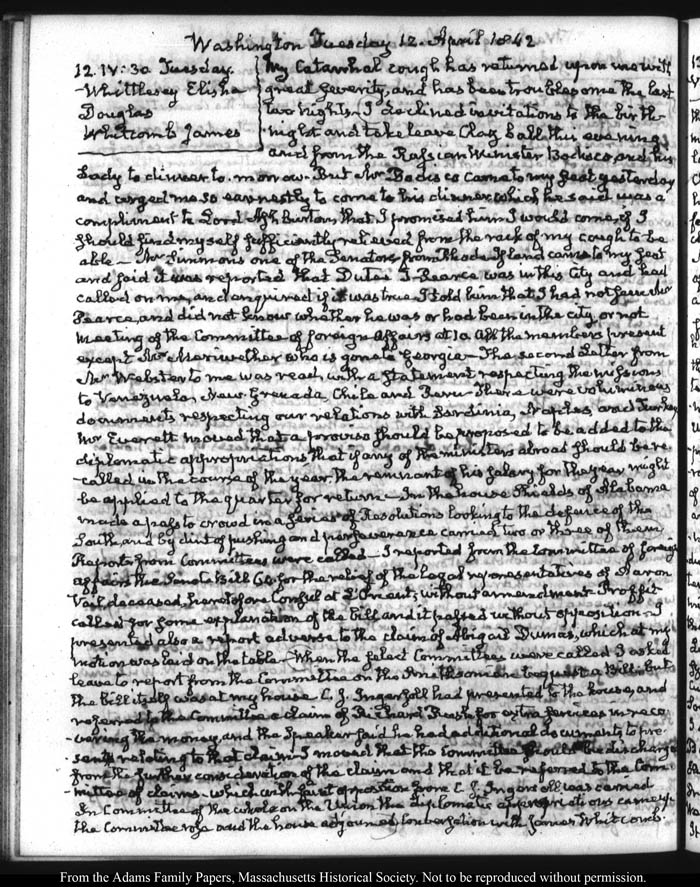 Washington Tuesday 12. April 1842
12. IV: 30 Tuesday.
Whittlesey Elisha
Douglas
Whitcomb James
My Catarrhal cough has returned upon me with
great severity, and has been troublesome the last
two nights. I declined invitations to the birth-
night and take leave Clay ball this evening
and from the Russian Minister Bodisco, and his
Lady to dinner to-morrow. But Mr Bodisco came to my seat yesterday
and urged me so earnestly to come to his dinner which he said was a
compliment to Lord Ashburton that I promised him I would come, if I
should find myself sufficiently relieved from the rack of my cough to be
able — Mr Simmons one of the Senators from Rhode-Island came to my seat
and said it was reported that Dutee J. Pearce was in this City and had
called on me, and enquired if it was true. I told him that I had not seen Mr
Pearce, and did not know whether he was or had been in the city, or not
Meeting of the Committee of foreign Affairs at 10. All the members present
except Mr Meriwether who is gone to Georgia — The second Letter from
Mr Webster to me was read, with a statement respecting the missions
to Venezuela, New Grenada, Chile and Peru — There were voluminous
documents respecting our relations with Sardinia, Naples, and Turkey
Mr Everett moved that a proviso should be proposed to be added to the
diplomatic appropriations, that if any of the ministers abroad should be re-
called in the course of the year, the remnant of his salary for the year might
be applied to the quarter for return — In the house Shields of Alabama
made a pass to crowd in a series of Resolutions looking to the defence of the
South, and by dint of pushing and perseverance carried two or three of them
Reports from Committees were called — I reported from the Committee of foreign
affairs the Senate Bill for the relief of the legal representatives of Aaron
Vail deceased, heretofore Consul at L'Orient, without amendment. Proffit
called for some explanation of the bill and it passed without opposition — I
presented also a report adverse to the claim of Abigail Dumas, which at my
motion was laid on the table. When the select Committees were called I asked
leave to report from the Committee on the Smithsonian bequest a Bill: but
the bill itself was at my house. C. J. Ingersoll had presented to the house, and
referred to the Committee a claim of Richard Rush for extra services in reco-
-vering the money, and the Speaker said he had additional documents to pre-
-sent relating to that claim. I moved that the committee should be discharged
from the further consideration of the claim and that it be referred to the Com-
-mittee of claims. which with faint opposition from C. J. Ingersoll was carried
In Committee of the whole on the Union the diplomatic appropriations came up
the Committee rose and the house adjourned. Conversation with James Whitcomb.
From the Adams Family Papers, Massachusetts Historical Society. Not to be reproduced without permission.